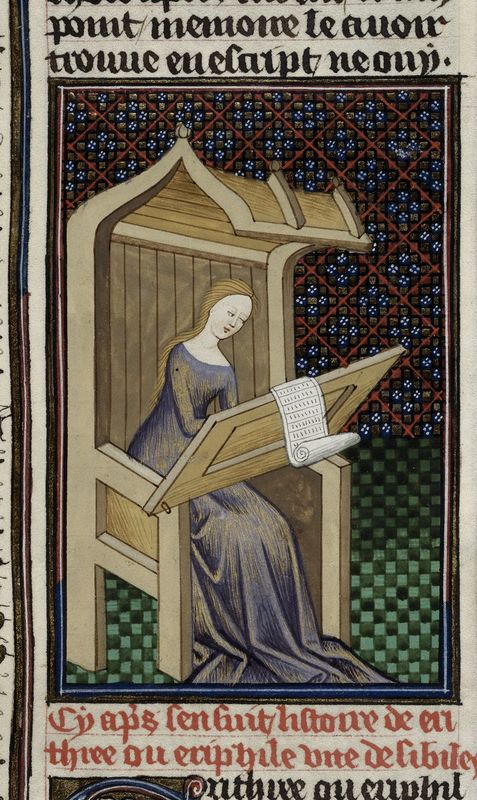 point memoire le auoir
trouue en escript ne ouy.
Cy apz̄ sensuit listoire de eri
three ou eriphile vne de sibiles
Erithree ou eriphil